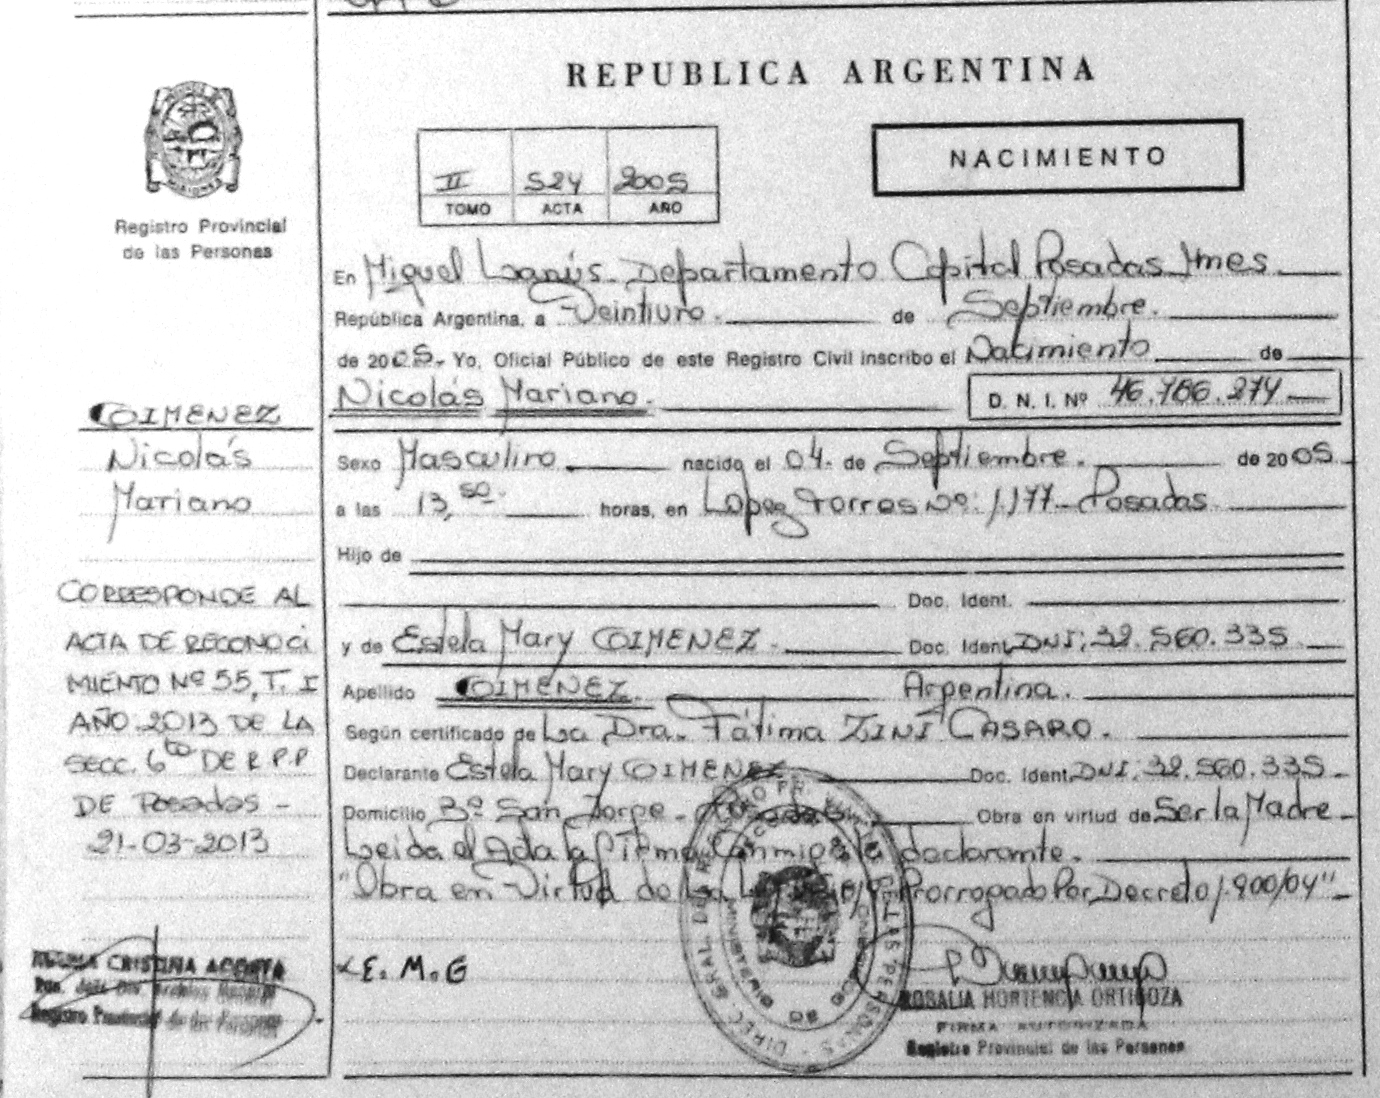 REPUBLICA ARGENTINA
NACIMIENTO
II 524 2005
TOMO ACTA AÑO
PROVINCIA DE MISIONES
Registro Provincial
de las Personas
En Miguel Lanús. Departamento Capital Posadas Mnes
República Argentina, a Veintiuno. de Septiembre.
de 2005. Yo, Oficial Público de este Registro Civil inscribo el Nacimiento de
Nicolás Mariano. D. N. I. Nº
GIMENEZ
Nicolás
Mariano
Sexo Masculino nacido el 04. de Septiembre. de 2005
a las 13,50. horas, en Lopez Torres Nº: 1.177 - Posadas.
Hijo de
Doc. Ident.
y de Estela Mary GIMENEZ. Doc. Ident. DNI: 32.560.335
Apellido GIMENEZ. Argentina.
Según certificado de La Dra. Fátima ZINI CASARO.
Declarante Estela Mary GIMENEZ Doc. Ident. DNI: 32.560.335.
Domicilio Bº San Jorge - Posadas Obra en virtud de Ser la Madre.
Leida el Acta la Firma Conmigo la declarante.
"Obra en Virtud de La Prorrogado Por Decreto 1.900/04"
CORRESPONDE AL
ACTA DE RECONOCI
MIENTO Nº 55, T. I
AÑO 2013 DE LA
SECC. 6ta DE R.P.P
DE Posadas -
21-03-2013
CRISTINA ACOSTA
Registro Provincial de las Personas
E. M. G
ROSALIA HORTENCIA ORTIGOZA
FIRMA AUTORIZADA
Registro Provincial de las Personas